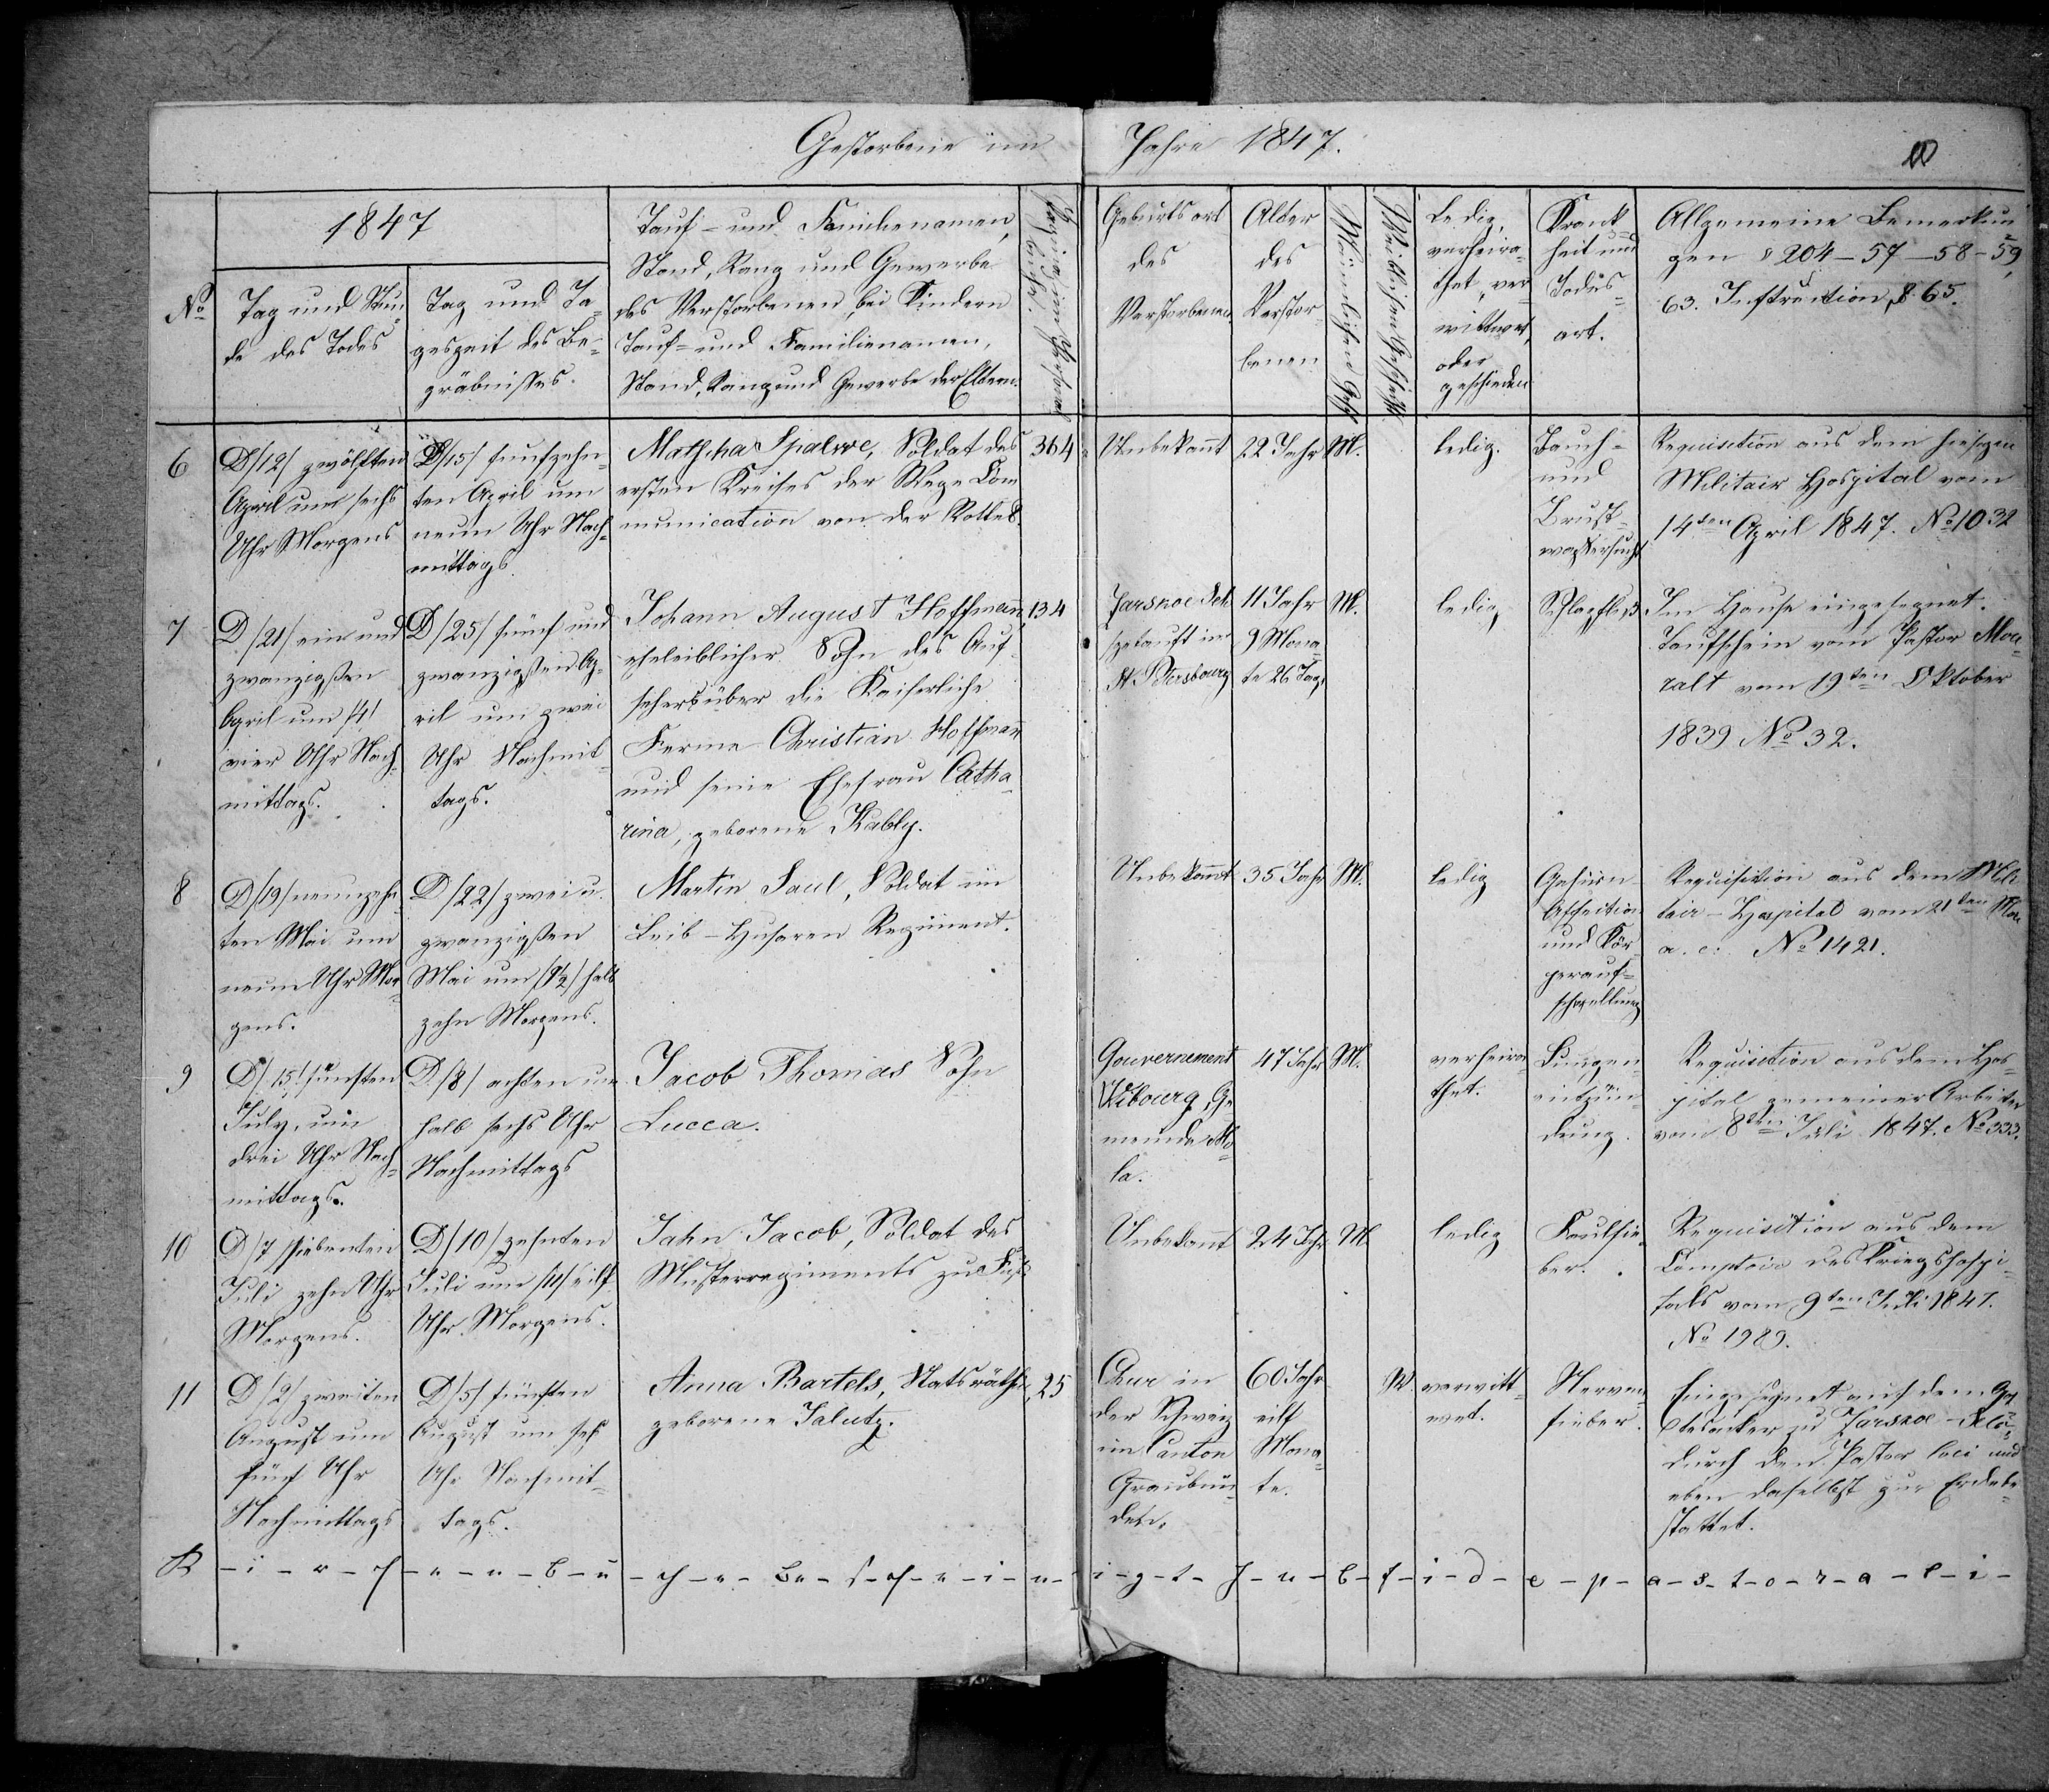 Gestorbene im Jahre 1847.
10
No
1847
Tag und Stun-
de des Todes
Tag und Ta-
geszeit des Be-
gräbnisses.
Tauf- und Familienamen,
Stand, Rang und Gewerbe
des Verstorbenen, bei Kindern
Tauf- und Familienamen,
Stand, Rang und Gewerbe der Eltern.
Geburtsort
des
Verstorbenen.
Alter
des
Verstor-
benen
Männlichen Gesch
Weiblichen Geschlecht
Ledig,
verheira-
thet, ver-
wittwet,
oder
geschieden
Krank-
heit und
Todes-
art.
Allgemeine Bemerkun-
gen § 204-57-58-59,
63. Instruction § 65.
6
D/12/ zwölften
April um sechs
Uhr Morgens
D/15/ fünfzehn-
ten April um
neun Uhr Nach-
mittags
Spalwe, Soldat des
ersten Kreises der Wege Com
munication von der Rotte
364
Unbekannt
22 Jahr
M.
ledig.
Bauch-
und
Brust-
wassersucht
Requisition aus dem hiesigen
Militair Hospital vom
14ten April 1847. No 1032
7
D/21/ ein und
zwanzigsten
April um /4/
vier Uhr Nach-
mittags.
D/25/ fünf und
zwanzigsten Ap-
ril um zwei
Uhr Nachmit-
tags.
Johann August Hoffmann,
eheleiblicher Sohn des Auf-
sehers über die Kaiserliche
Ferme Christian Hoffmann
und seine Ehefrau Catha-
rina, geborene Kably.
134
Zarskoe Selo
getauft in
St. Petersbourg
11 Jahr
9 Mona-
te 26 Tag.
M.
ledig
Schlagfluß
Im Hause eingesegnet.
Taufschein vom Pastor Mou-
ralt vom 19ten Oktober
1839 No 32.
8
D/19/ neunzehn-
ten Mai um
neun Uhr Mor-
gens.
D/22/ zwei u.
zwanzigsten
Mai um /9½/ halb
zehn Morgens.
Martin Saul, Soldat im
Leib-Husaren Regiment.
Unbekannt
35 Jahr
M.
ledig
Gehirn-
und Kör-
perauf-
schwellung
Requisition aus dem Mili
tair-Hospital vom 21ten Mai
a. c. No 1421.
9
D/5/ fünften
July, um
drei Uhr Nach-
mittags.
D/8/ achten um
halb sechs Uhr
Nachmittags
Jacob Thomas Sohn
Lucca.
Gouvernement
Wibourg, Ge
meinde Mo-
la.
47 Jahr
M.
verheira-
thet.
Lungen-
entzün-
dung.
Requisition aus dem Hos-
pital gemeiner Arbeiter
vom 8ten Juli 1847. No 333.
10
D/7/ siebenten
Juli zehn Uhr
Morgens.
D/10/ zehnten
Juli um /11/ eilf
Uhr Morgens.
Jahn Jacob, Soldat des
Musterregiments zu Fuß.
Unbekannt
24 Jahr
M.
ledig
Faulfie-
ber.
Requisition aus dem
Comptoir des Kriegshospi-
tals vom 9ten Juli 1847.
No 1989.
11
D/2/ zweiten
August um
fünf Uhr
Nachmittags
D/5/ fünften
August um sechs
Uhr Nachmit-
tags.
Anna Bartels, Statsräthin,
geborene Salutz.
25
Chur in
der Schweiz
im Canton
Graubün-
den.
60 Jahr
eilf
Mona-
te.
W.
verwitt-
wet.
Nerven-
fieber.
Eingesegnet auf dem Got
tesacker zu Zarskoe-Selo
durch den Pastor loci und
eben daselbst zur Erde be-
stattet.
K-i-r-ch-e-n-b-u-ch-e-Be-s-ch-e-i-n-i-g-t-h-u-b-f-i-d-e-p-a-s-t-o-r-a-l-i-